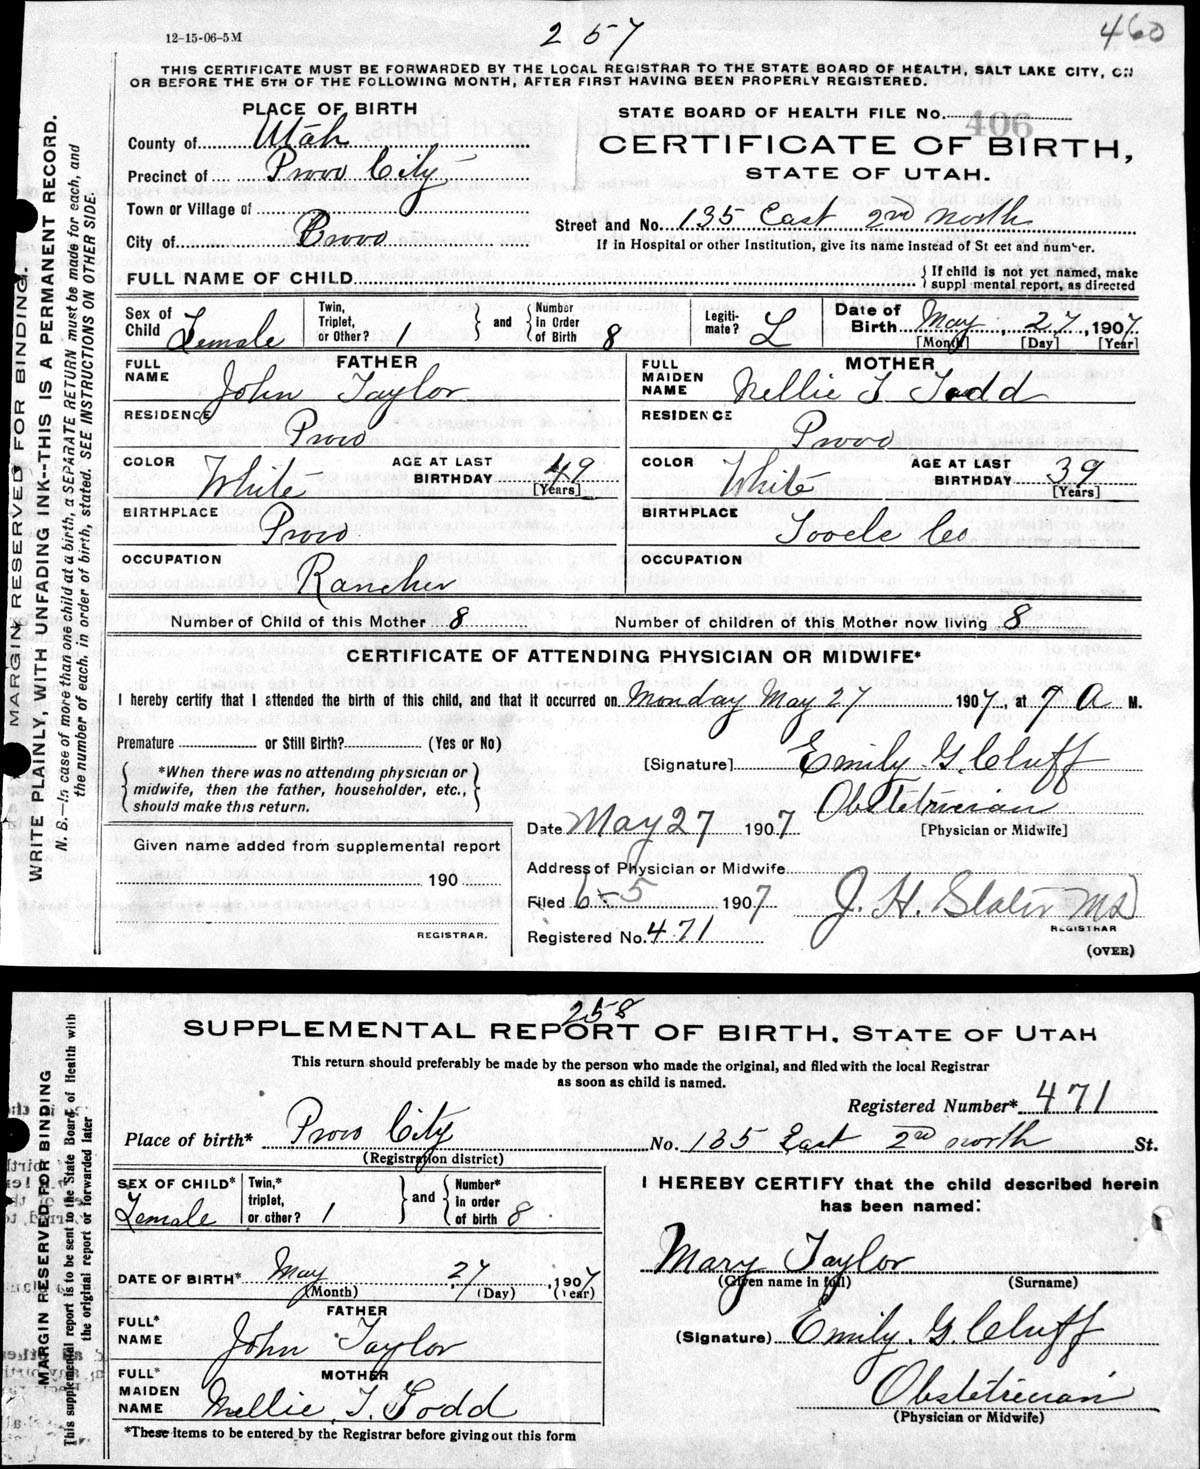 12-15-06-5M
257
460
THIS CERTIFICATE MUST BE FORWARDED BY THE LOCAL REGISTRAR TO THE STATE BOARD OF HEALTH, SALT LAKE CITY, ON
OR BEFORE THE 5TH OF THE FOLLOWING MONTH, AFTER FIRST HAVING BEEN PROPERLY REGISTERED.
PLACE OF BIRTH
County of Utah
Precinct of Provo City
Town or Village of
City of Provo
STATE BOARD OF HEALTH FILE NO. 406
CERTIFICATE OF BIRTH,
STATE OF UTAH.
Street and No. 135 East 2nd north
If in Hospital or other Institution, give its name instead of St eet and number.
FULL NAME OF CHILD
If child is not yet named, make
suppl mental report, as directed
Sex of Child Female
Twin, Triplet, or Other? 1
and
Number in Order of Birth 8
Legiti-mate? L
Date of Birth May, 27, 1907
[Month] [Day] [Year]
FATHER
FULL NAME John Taylor
RESIDENCE Provo
COLOR White
AGE AT LAST BIRTHDAY 49
[Years]
BIRTHPLACE Provo
OCCUPATION Rancher
MOTHER
FULL MAIDEN NAME Nellie T Todd
RESIDENCE Provo
COLOR White
AGE AT LAST BIRTHDAY 39
[Years]
BIRTHPLACE Tooele Co
OCCUPATION
Number of Child of this Mother 8
Number of children of this Mother now living 8
CERTIFICATE OF ATTENDING PHYSICIAN OR MIDWIFE*
I hereby certify that I attended the birth of this child, and that it occurred on Monday May 27 1907, at 7 A M.
Premature or Still Birth? (Yes or No)
*When there was no attending physician or
midwife, then the father, householder, etc.,
should make this return.
[Signature] Emily G. Cluff
Obstetrician
[Physician or Midwife]
Date May 27 1907
Given name added from supplemental report
190
REGISTRAR.
Address of Physician or Midwife
Filed 6-5 1907
J. H. Slater MD
REGISTRAR
Registered No. 471
(OVER)
MARGIN RESERVED FOR BINDING.
WRITE PLAINLY, WITH UNFADING INK--THIS IS A PERMANENT RECORD.
N. B.—In case of more than one child at a birth, a SEPARATE RETURN must be made for each, and
the number of each, in order of birth, stated. SEE INSTRUCTIONS ON OTHER SIDE.
258
SUPPLEMENTAL REPORT OF BIRTH, STATE OF UTAH
This return should preferably be made by the person who made the original, and filed with the local Registrar
as soon as child is named.
Registered Number* 471
Place of birth* Provo City No. 135 East 2nd north St.
(Registration district)
SEX OF CHILD* Female
Twin,* triplet, or other? 1
and
Number* in order of birth 8
DATE OF BIRTH* May 27, 1907
(Month) (Day) (Year)
FATHER
FULL* NAME John Taylor
MOTHER
FULL* MAIDEN NAME Nellie T. Todd
*These items to be entered by the Registrar before giving out this form
I HEREBY CERTIFY that the child described herein
has been named:
Mary Taylor
(Given name in full) (Surname)
(Signature) Emily. G. Cluff
Obstetrician
(Physician or Midwife)
MARGIN RESERVED FOR BINDING
This supplemental report is to be sent to the State Board of Health with
the original report or forwarded later